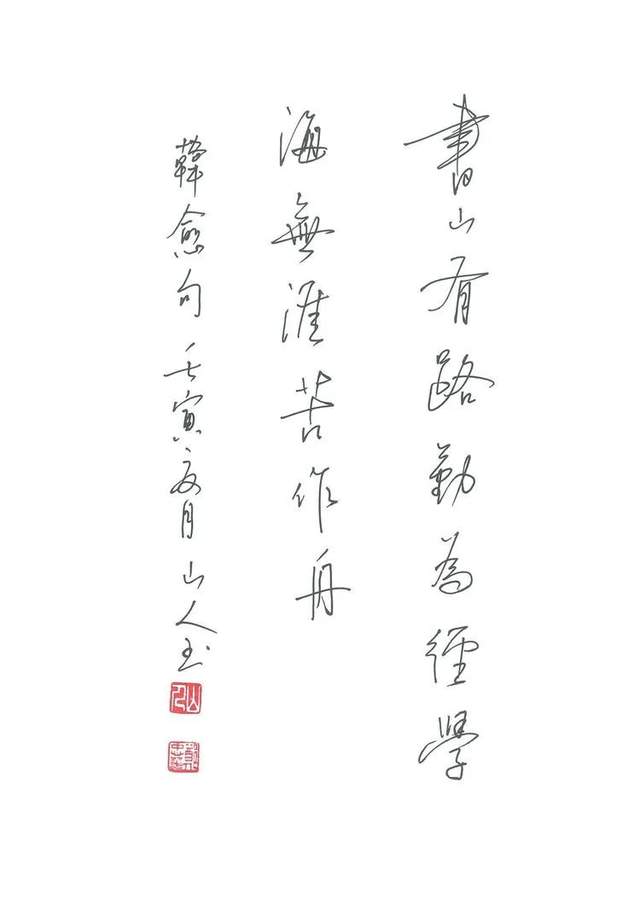 書山有路勤為徑學
海無涯苦作舟
韓愈句 壬寅夏月 山人
山人